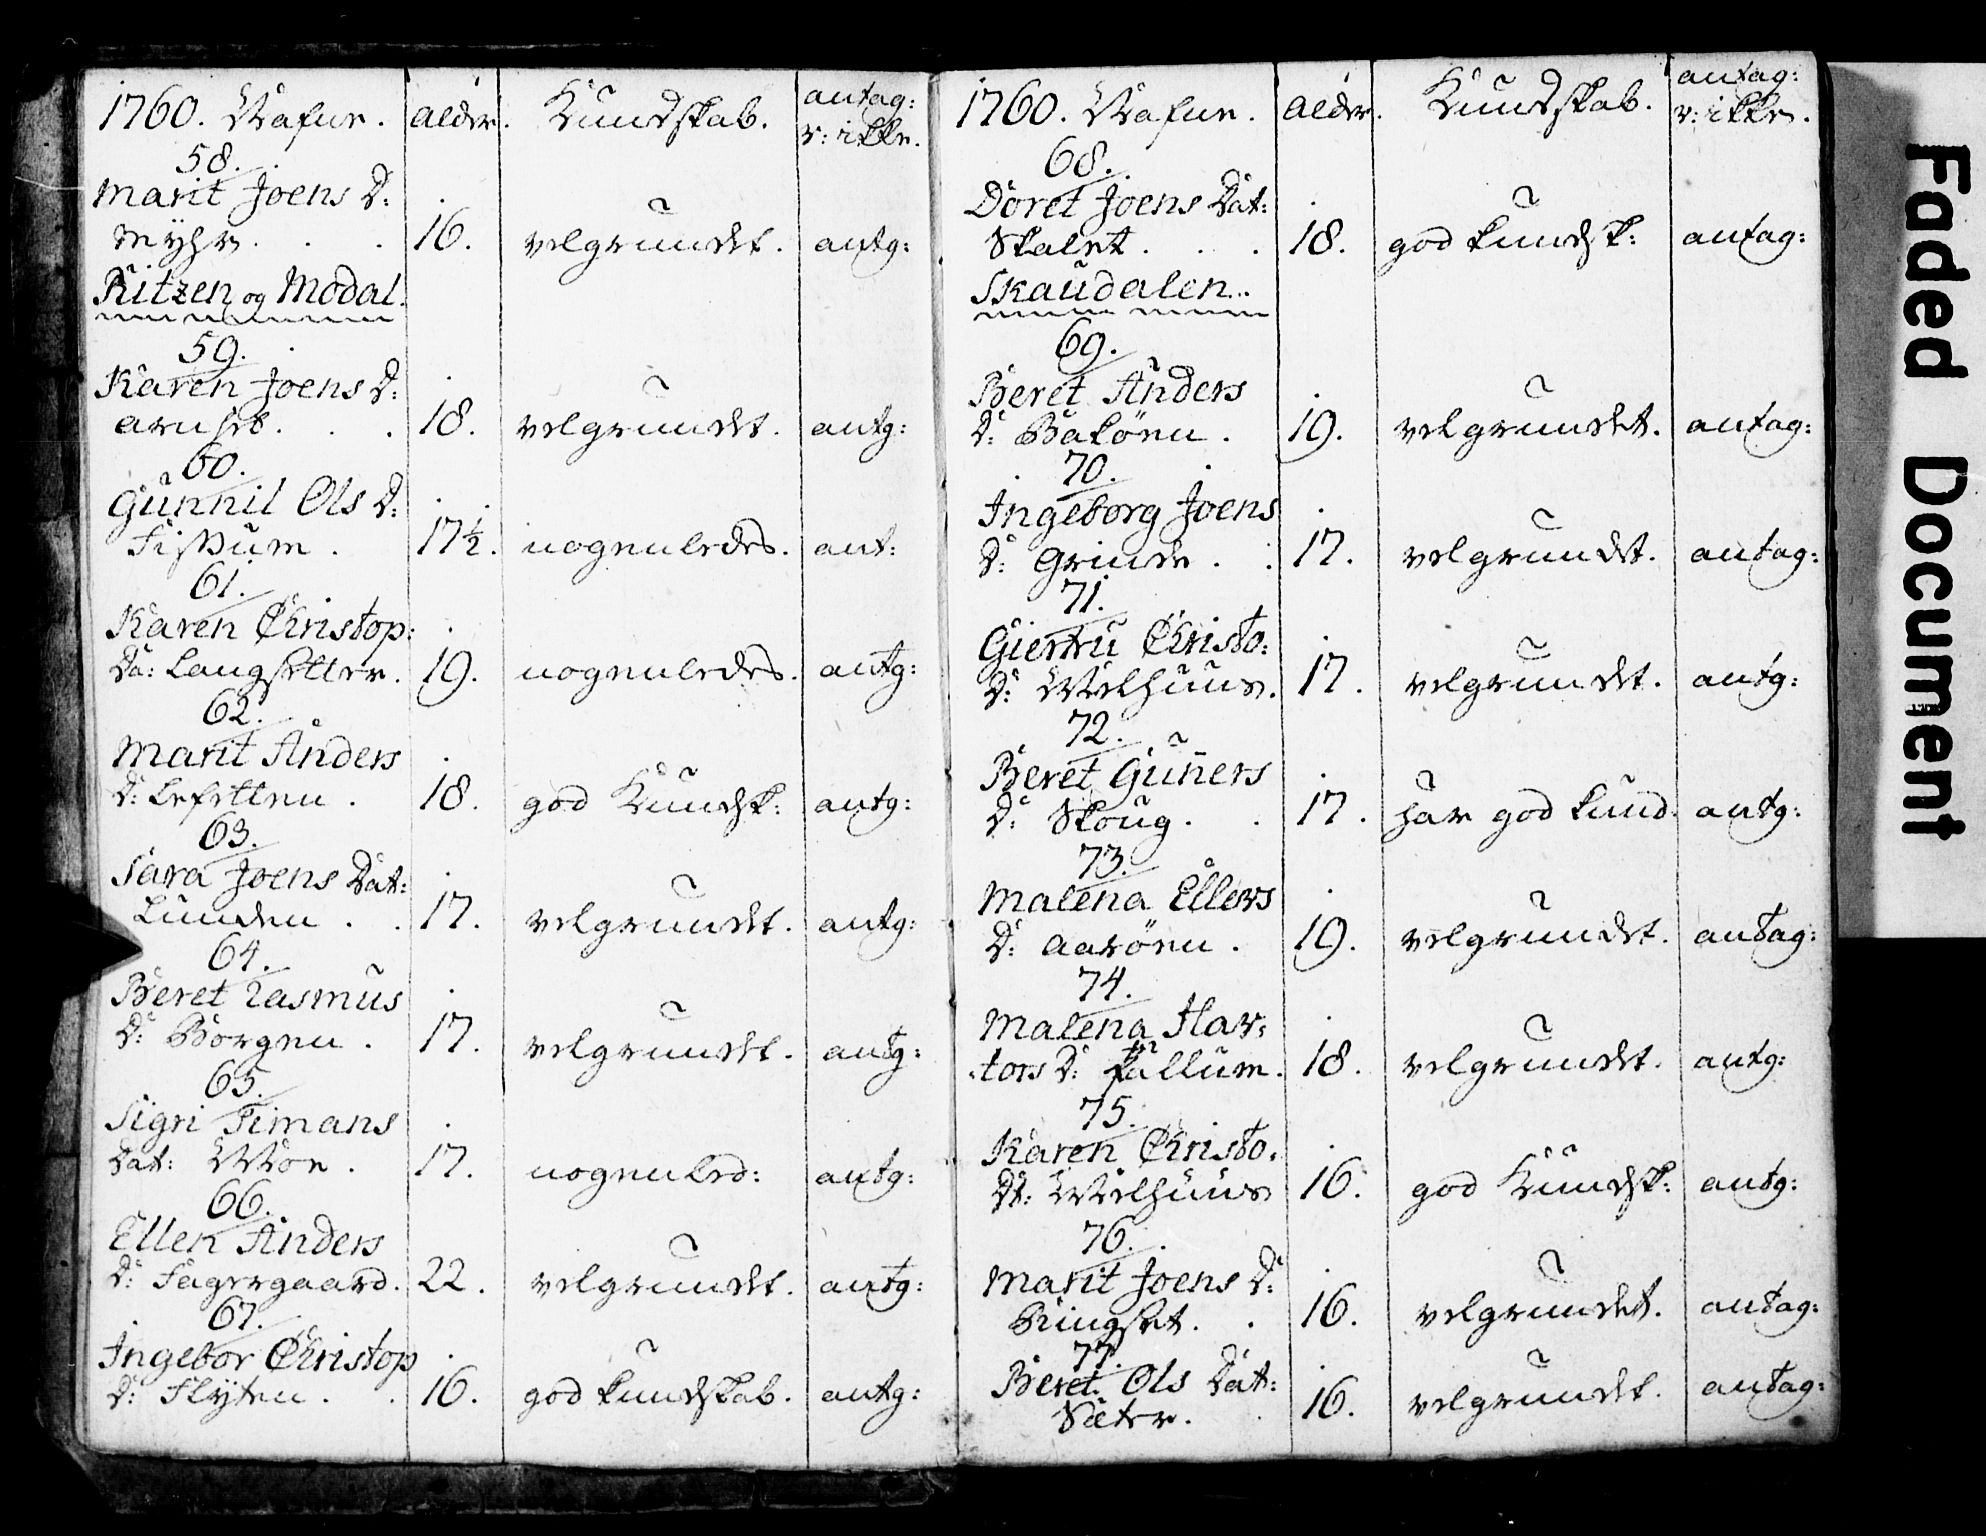 1760. Nafne. alder. Kundskab. antag: e: ikke.
58.
Marit Joens D:
Myhre . . 16. velgrundet. antg:
Ritzen og Modal.
59.
Karen Joens D:
Arnset . . 18. velgrundet. antg:
60.
Gunnil Ols D:
Fissum . 17½. nogenledes. ant:
61.
Karen Christop:
Da: Langsetter. 19. nogenledes. antg:
62.
Marit Anders
D: . 18. god Kundsk: antg:
63.
Sara Joens Dat:
Lunden . . 17. velgrundet. antg:
64.
Beret Rasmus
D: Borgen . 17. velgrundet. antg:
65.
Sigri Timans
Dat: Moe . 17. nogenled: antg:
66.
Ellen Anders
D: Fagergaard. 22. velgrundet. antg:
67.
Ingebor Christop
D: Flyten . . 16. god kundskab. antg:
1760. Nafne. alder. Kundskab. antag: e: ikke.
68.
Doret Joens Dat:
Skalet . . 18. god kundsk: antag:
Skaudalen..
69.
Beret Anders
D: Baköen . 19. velgrundet. antag:
70.
Ingeborg Joens
D: Grinde . . 17. velgrundet. antag:
71.
Giertru Christo:
D: Melhuus. 17. velgrundet. antg:
72.
Beret Guners
D: Skoug . . 17. har god kund. antg:
73.
Malena Ellers
D: Aaröen . 19. velgrundet. antag:
74.
Malena Hav:
tors D: 18. velgrundet. antg:
75.
Karen Christo.
Dt: Melhuus 16. god Kundsk: antg:
76.
Marit Joens D:
Ringset . . 16. velgrundet. antag:
77.
Beret Ols Dat:
Sæter . . 16. velgrundet. antag:
Faded Document